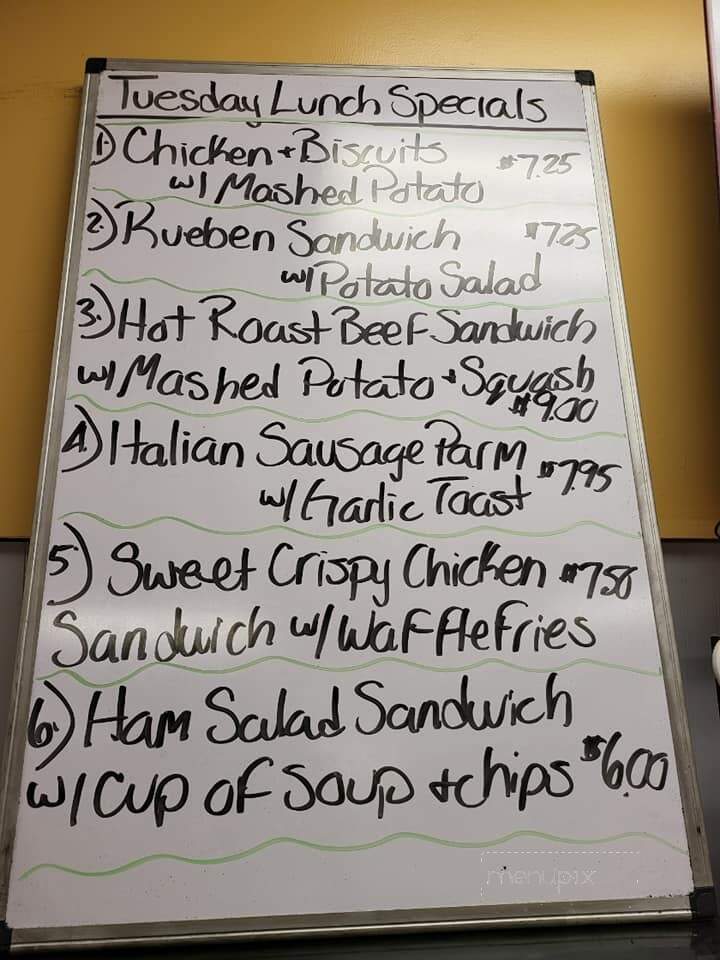 Tuesday Lunch Specials
1.) Chicken + Biscuits $7.25
w/ Mashed Potato
2.) Rueben Sandwich $7.25
w/ Potato Salad
3.) Hot Roast Beef Sandwich
w/ Mashed Potato + Squash
$9.00
4.) Italian Sausage Parm $7.95
w/ Garlic Toast
5.) Sweet Crispy Chicken $7.50
Sandwich w/ Waffle Fries
6.) Ham Salad Sandwich
w/ Cup of Soup + chips $6.00
menupix